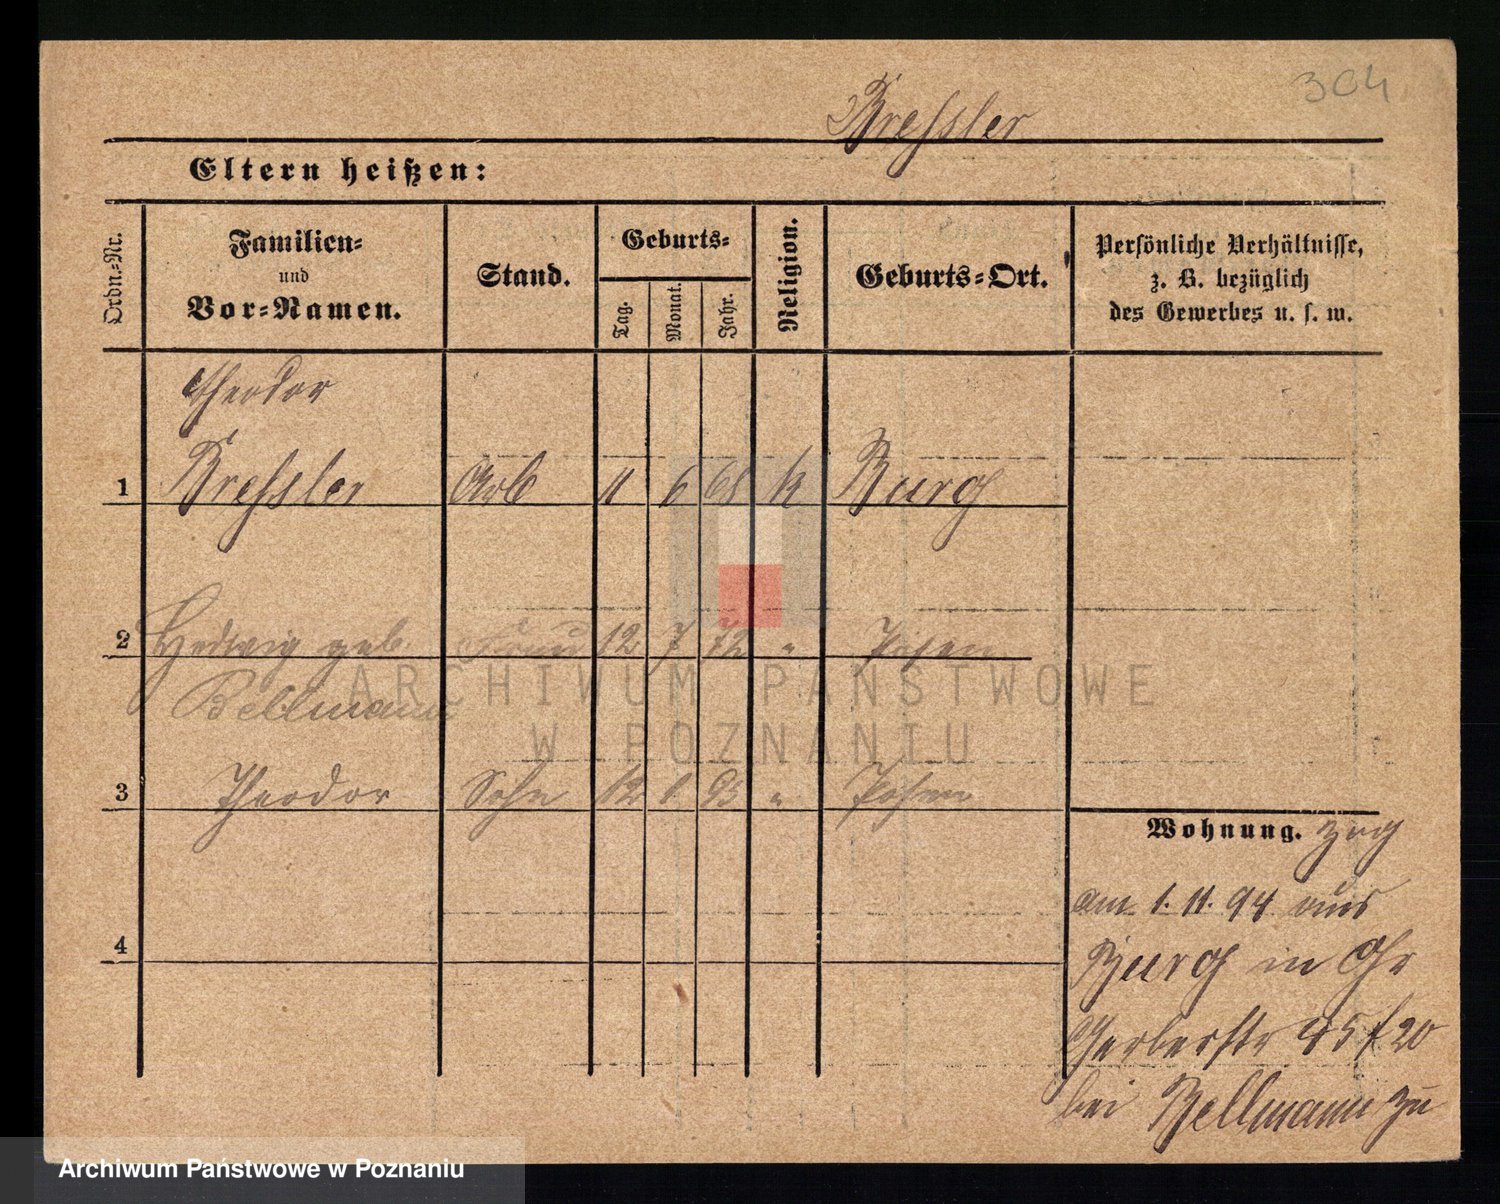 304
Bressler
Eltern heißen:
Ordn.-Nr.
Familien-
und
Vor-Namen.
Stand.
Geburts-
Tag.
Monat.
Jahr.
Religion.
Geburts-Ort.
Persönliche Verhältnisse,
z. B. bezüglich
des Gewerbes u. s. w.
Theodor
1 Bressler Arb 11 6 68 k Burg
2 Hedwig geb. Frau 12 7 72 " Posen
Bellmann
ARCHIWUM PAŃSTWOWE
W POZNANIU
3 Theodor Sohn 12 1 95 " Posen
4
Wohnung. zog
am 1. 11. 94 aus
Burg in Gr
Gerberstr 45/20
bei Bellmann zu
Archiwum Państwowe w Poznaniu